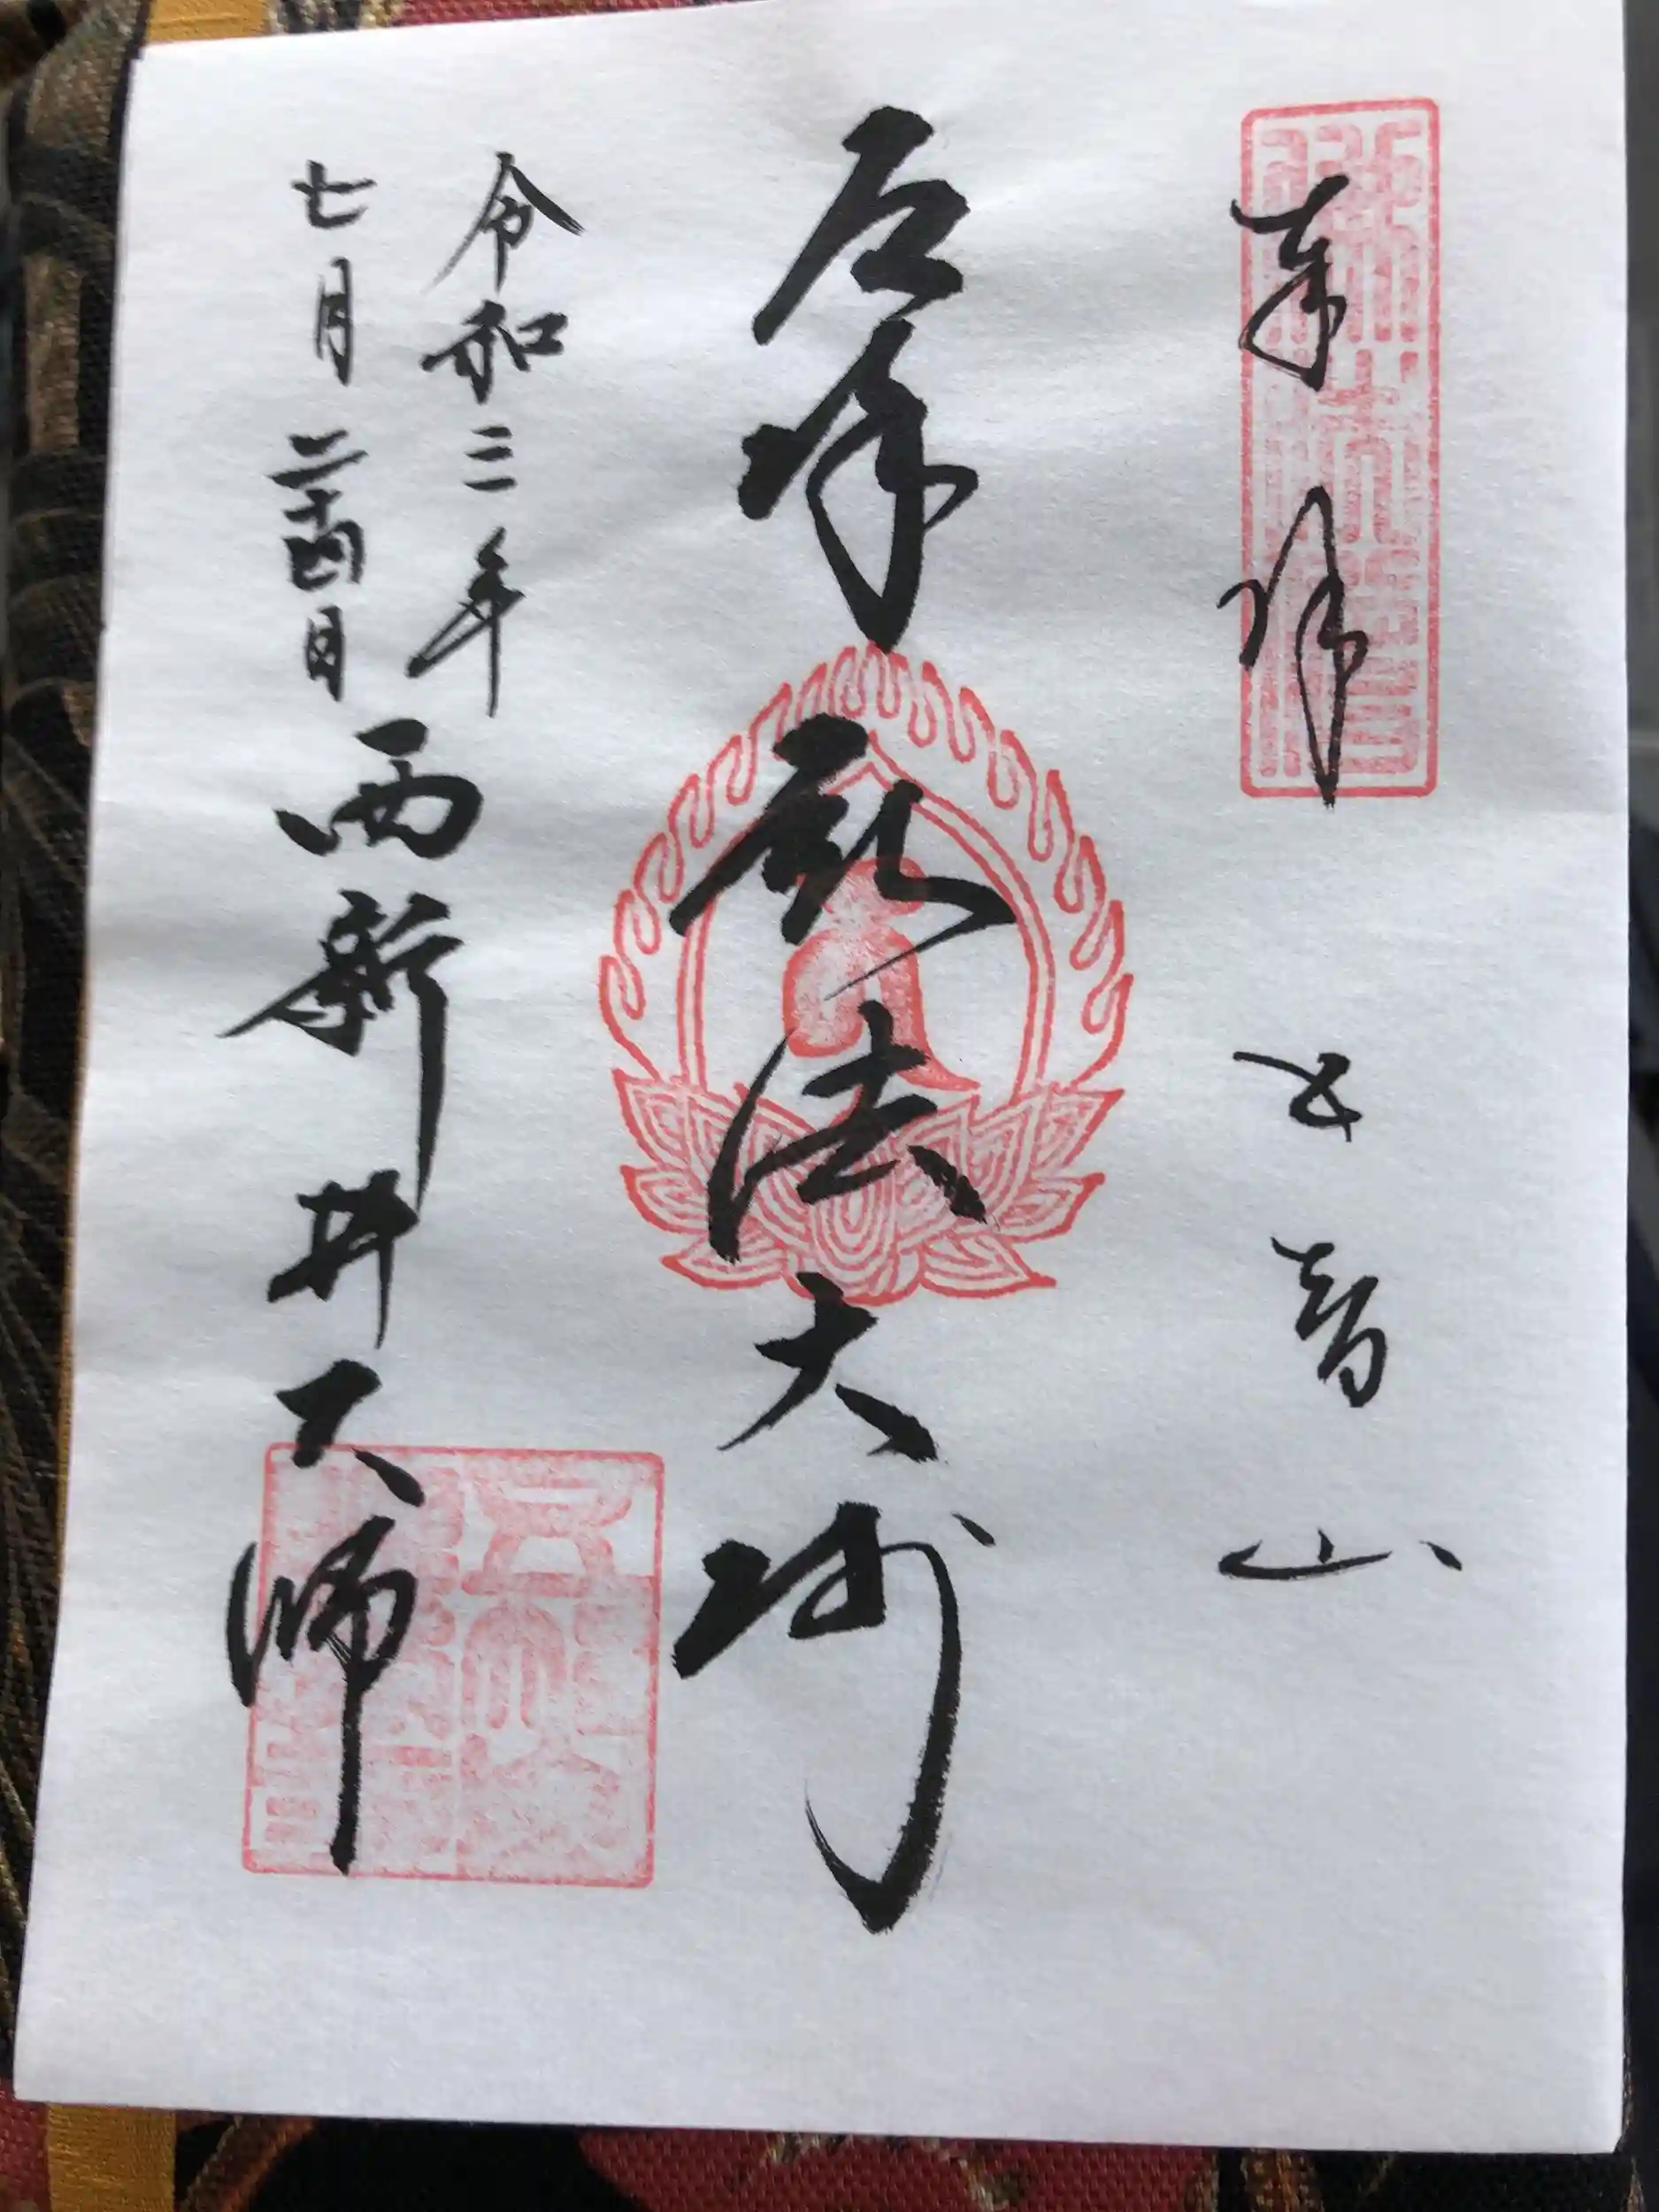 奉拝 五智山
厄除弘法大師
令和三年
七月二十四日
西新井大師